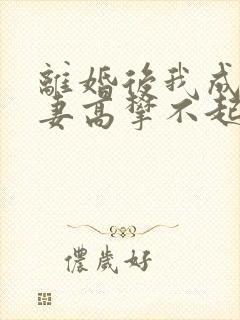 離婚後我成
妻高攀不起
儂歲好